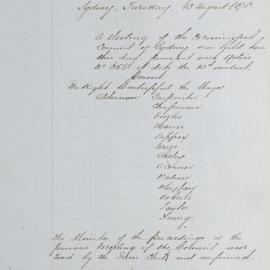 Sydney, Tuesday, 13 August 1878
A Meeting of the Municipal
Council of Sydney was held here
this day, pursuant upon notice
of date the 10th instant.
Present
The Right Worshipful the Mayor
Aldermen
Chapman
Hogan
Harris
O'Connor
Palmer
Playfair
Roberts
Taylor
Young
The Minutes of the proceedings at the
previous Meeting of the Council were
read by the Town Clerk and confirmed.